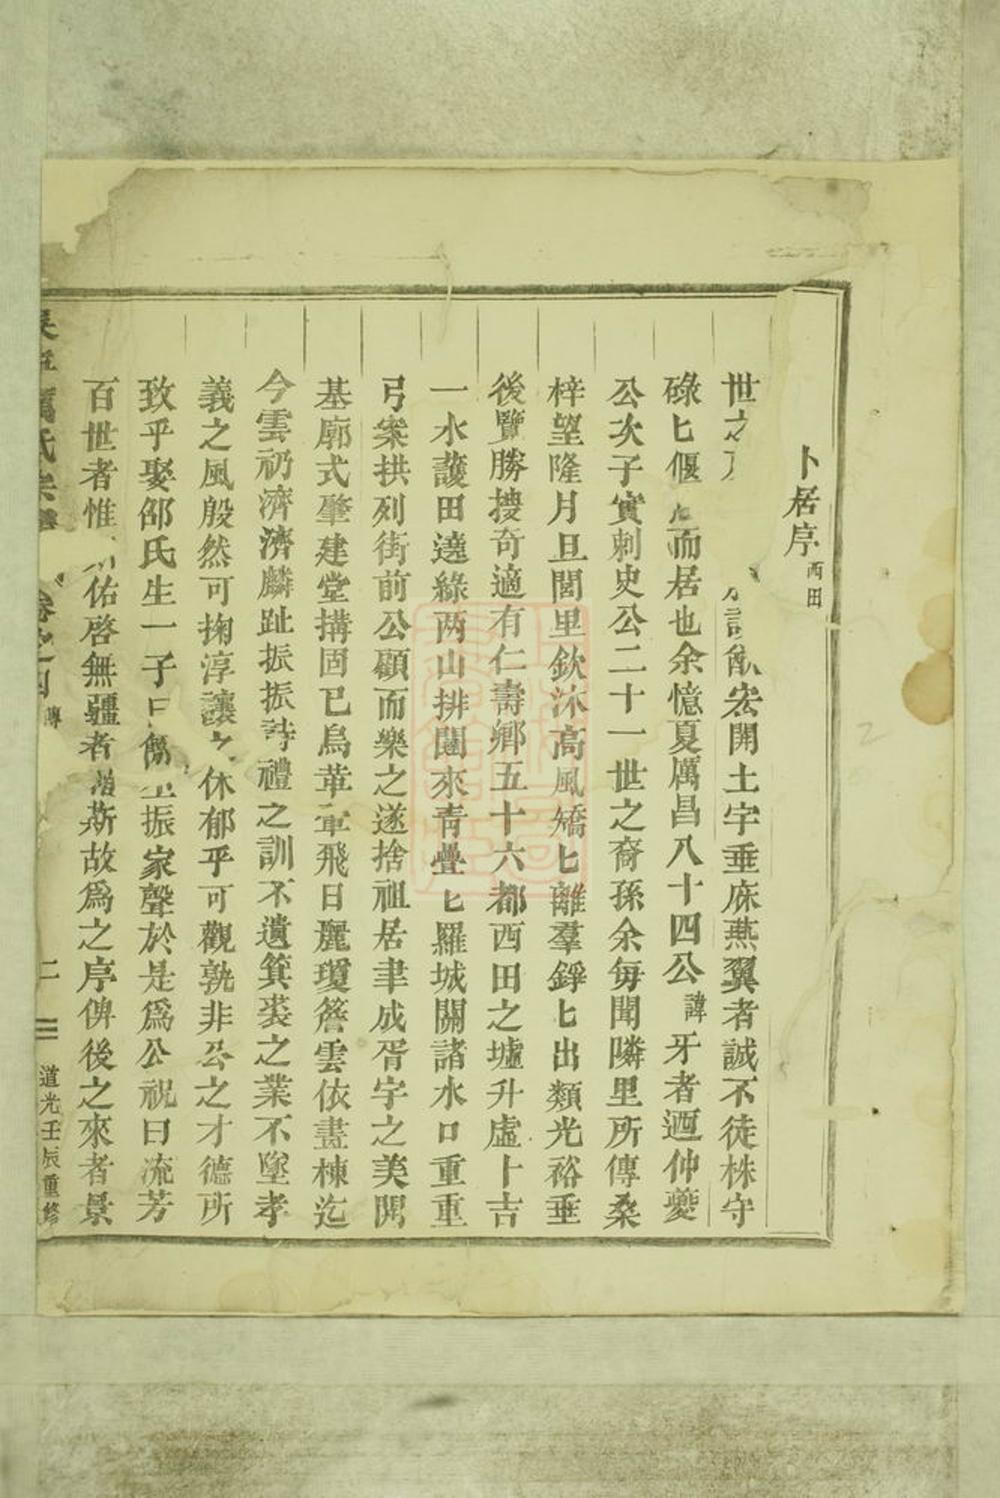 卜居序西田
世之 謨猷宏開土宇垂庥燕翼者誠不徒株守
碌匕偃 而居也余憶夏厲昌八十四公諱牙者迺仲夔
公次子實刺史公二十一世之裔孫余每聞隣里所傳桑
梓望隆月旦閭里欽沐高風矯匕離羣錚匕出類光裕垂
後覽勝搜奇適有仁壽鄉五十六都西田之墟升虛卜吉
一水護田遶綠两山排闥來青疊匕羅城關諸水口重重
弓案拱列街前公顧而樂之遂捨祖居聿成胥宇之美開
基廓式肇建堂搆固已鳥革翬飛日麗瓊簷雲依畫棟迄
今雲礽濟濟麟趾振振詩禮之訓不遺箕裘之業不墜孝
義之風殷然可掬淳讓之休郁乎可觀孰非公之才德所
致乎娶邵氏生一子曰 振家聲於是爲公祝曰流芳
百世者惟 佑啓無疆者 斯故爲之序俾後之來者景
吴寧厲氏宗譜 卷之四 傳 二 三 道光壬辰重修